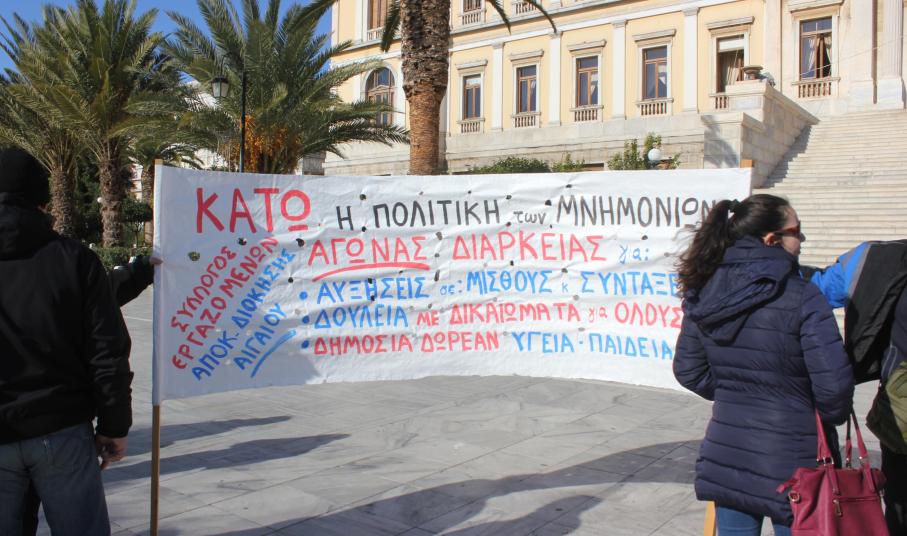 ΚΑΤΩ Η ΠΟΛΙΤΙΚΗ των ΜΝΗΜΟΝΙΩΝ
ΑΓΩΝΑΣ ΔΙΑΡΚΕΙΑΣ για:
• ΑΥΞΗΣΕΙΣ σε: ΜΙΣΘΟΥΣ κ ΣΥΝΤΑΞΕ
• ΔΟΥΛΕΙΑ με ΔΙΚΑΙΩΜΑΤΑ για ΟΛΟΥΣ
• ΔΗΜΟΣΙΑ ΔΩΡΕΑΝ ΥΓΕΙΑ - ΠΑΙΔΕΙΑ
ΣΥΛΛΟΓΟΣ
ΕΡΓΑΖΟΜΕΝΩΝ
ΑΠΟΚ. ΔΙΟΙΚΗΣΗΣ
ΑΙΓΑΙΟΥ